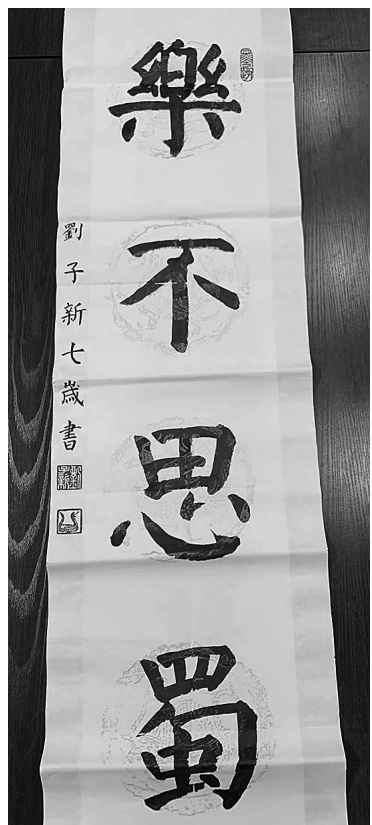 樂不思蜀
劉子新七歲書